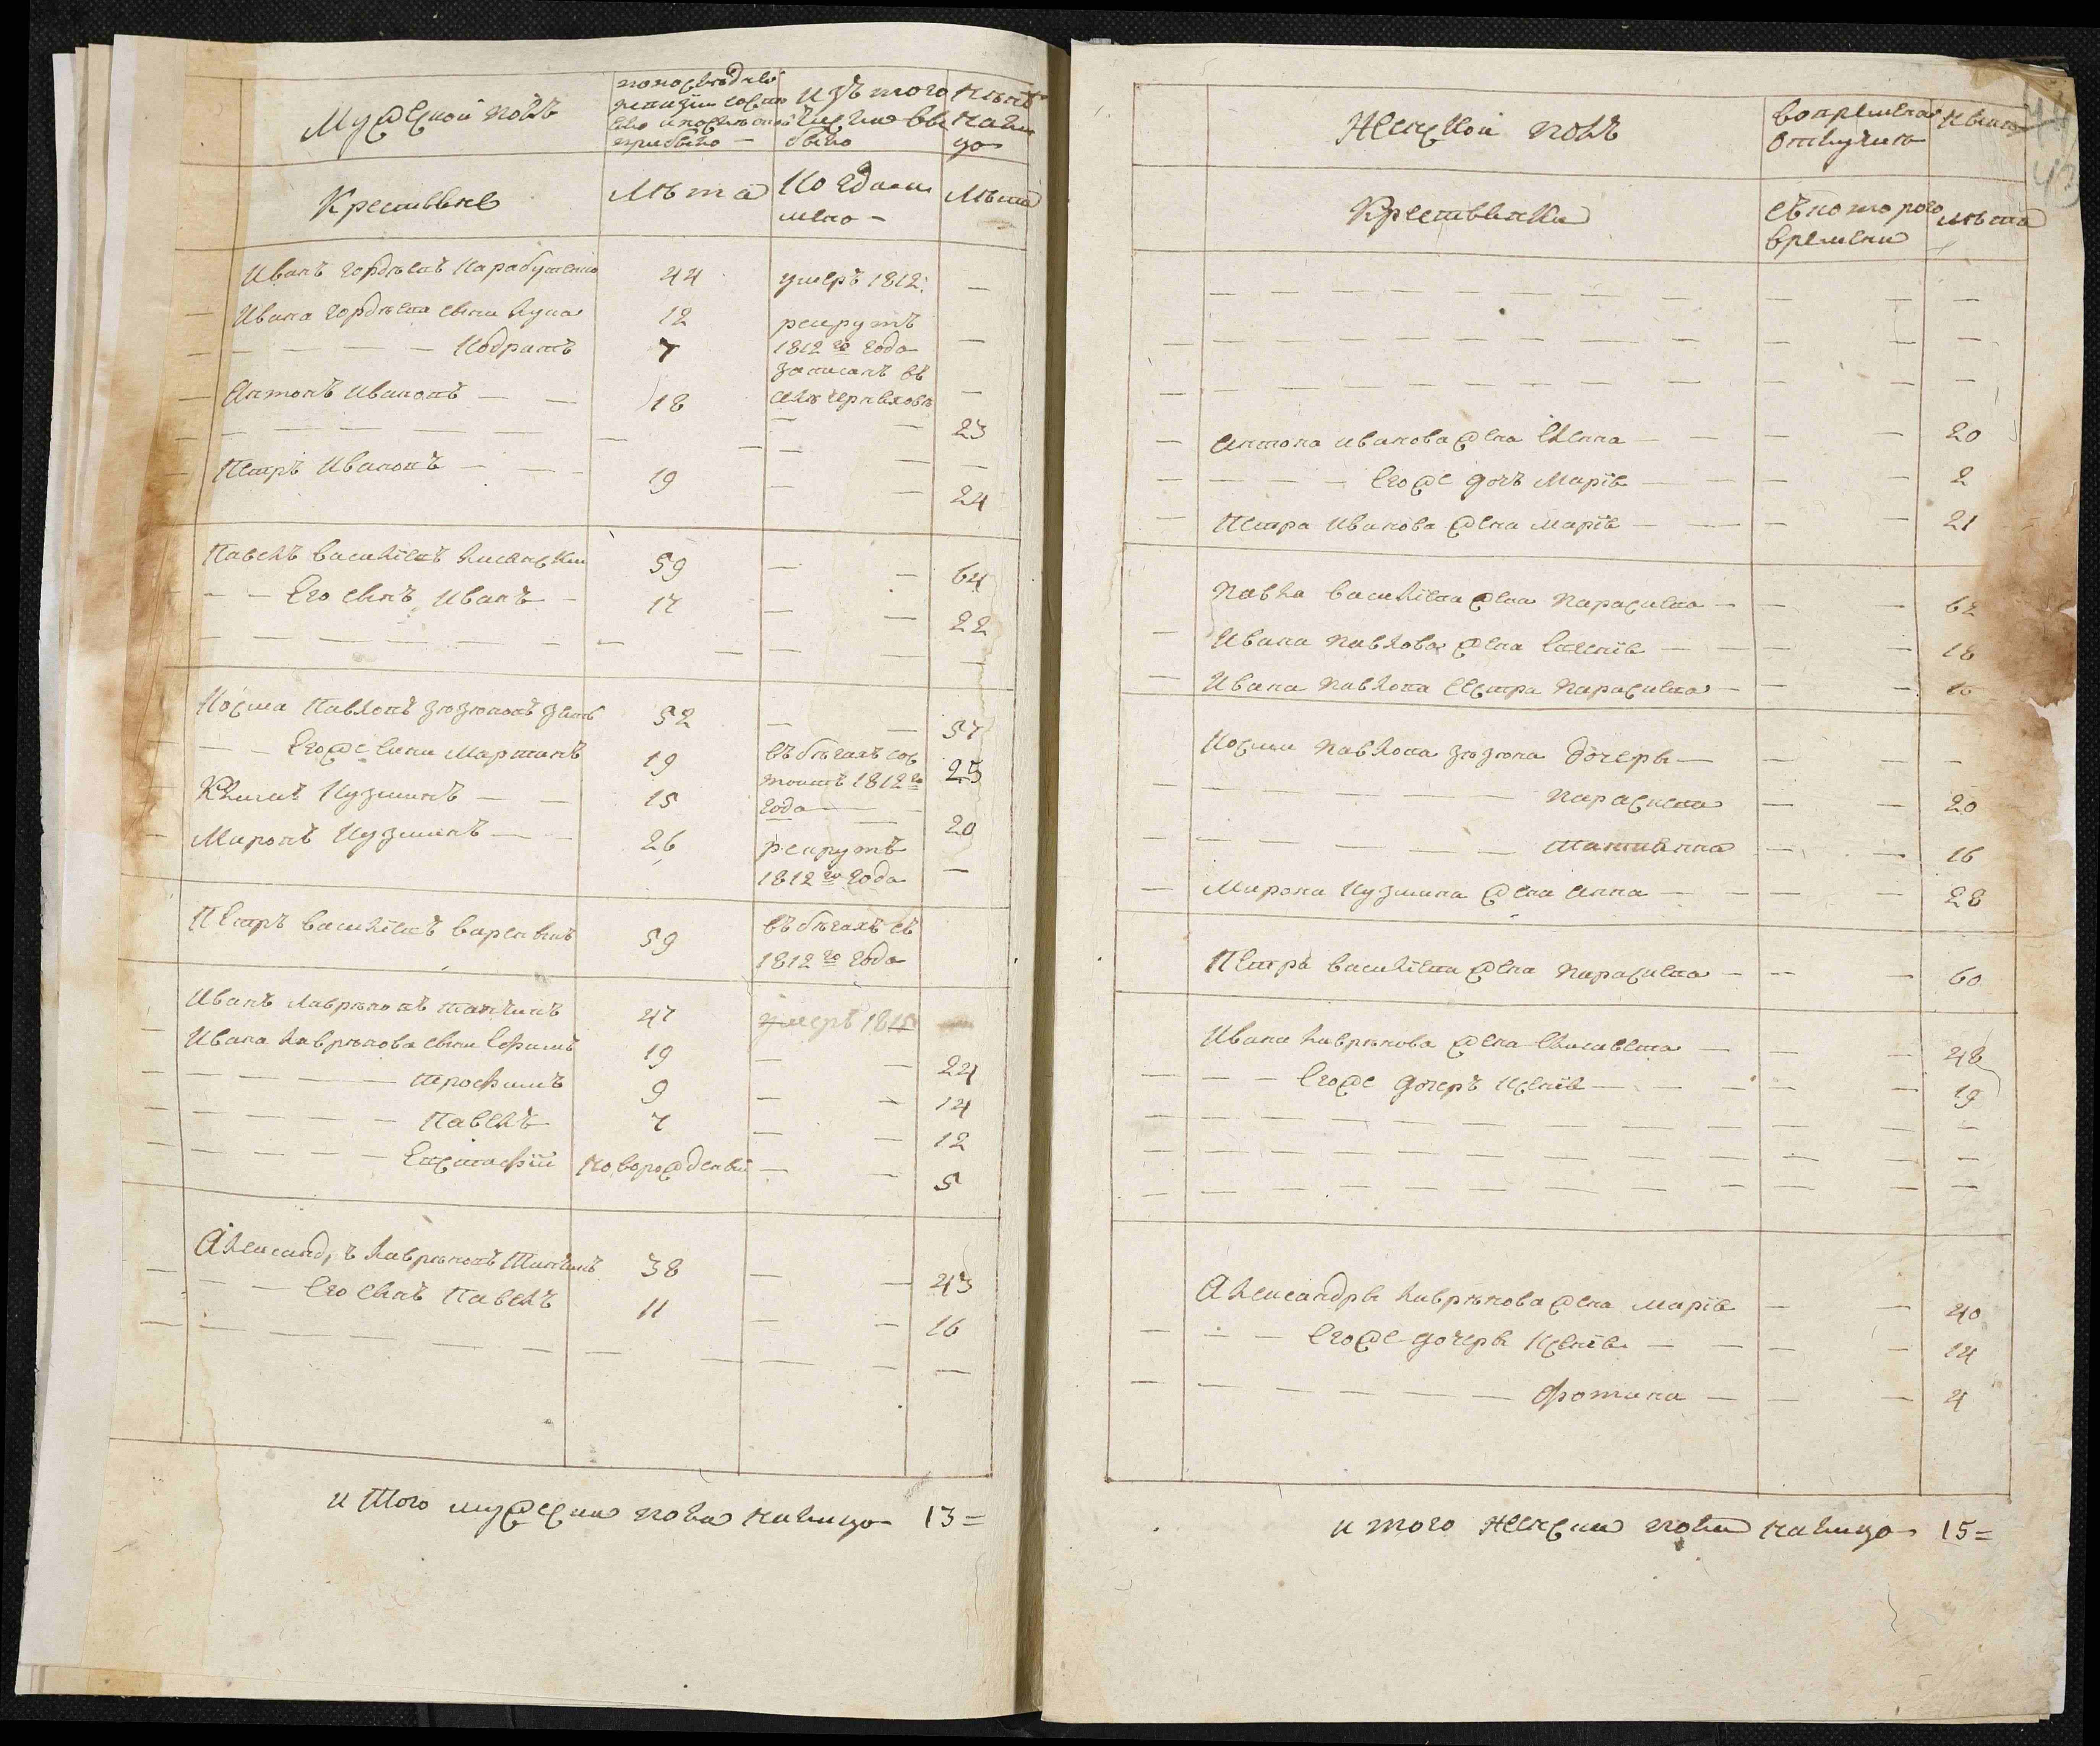 Мужеской полъ
попоследней
ревизiи состо
яло и после оной
прибыло —
изъ того
числа вы
было
Ныне
нали
цо
Крестьяне
Лѣта
Когда и
мено —
Лѣта
Иванъ Гордѣевъ 44 умеръ 1812. —
Ивана Гордѣева сыны Лука 12 рекрутъ
— — — — Кодратъ 7 1812 го года —
записанъ въ
Антонъ Ивановъ — — 18 —
— — — — — — — 23
Петръ Ивановъ — — — 19 — — 24
Павелъ Василiевъ 59 — — 64
— — Его сынъ Иванъ — 17 — — 22
— — — — — — — — — —
Косма Павловъ Зюзюковъ 52 — — 57
— — Егоже сыны Мартинъ 19 въ бѣгахъ сос 25
тоитъ 1812 го
Климъ Кузминъ — — 15 года — 20
Миронъ Кузминъ — — 26 рекрутъ
1812 го года —
Петръ Василiевъ 59 въ бѣгахъ съ
1812 го года
Иванъ Лаврѣновъ 47 умеръ 1815
Ивана Лаврѣнова сыны Ефимъ 19 — — 24
— — — — Трофимъ 9 — — 14
— — — — — Павелъ 7 — — 12
— — — — Евстафiй новорожденый — — 5
Александръ Лаврѣновъ 38 — — 43
— — Его сынъ Павелъ 11 — — 16
— — — — — — — — — —
и того мужеска пола налицо 13 =
Женской полъ
вовременой
отлучке
Ныне
Крестьянки
съ которого
времени
лѣта
— — — — — — — — — —
— — — — — — — — — —
— — — — — — — — — —
— Антона Иванова жена Елена — — — 20
— — — — Егоже дочь Марiя — — — 2
— Петра Иванова жена Марiя — — — 21
Павла Василiева жена Параскева — — — 62
— Ивана Павлова жена Евгенiя — — — 18
— Ивана Павлова сестра Параскева — — —
Космы Павлова Зюзюка дочери — — — —
— — — — — Параскева — — 20
— — — — — Татиянна — — 16
— Мирона Кузмина жена Анна — — — 28
Петра Василiева жена Параскева — — — 60
Ивана Лаврѣнова жена Елисавета — — — 48
— — — Егоже дочерь Ксенiя — — — 19
— — — — — — — — — —
— — — — — — — — — —
— — — — — — — — — —
Александры Лаврѣнова жена Марiя — — 40
— — — Егоже дочери Ксенiя — — — 14
— — — — — — Фотина — — — 4
и того женска пола налицо 15 =